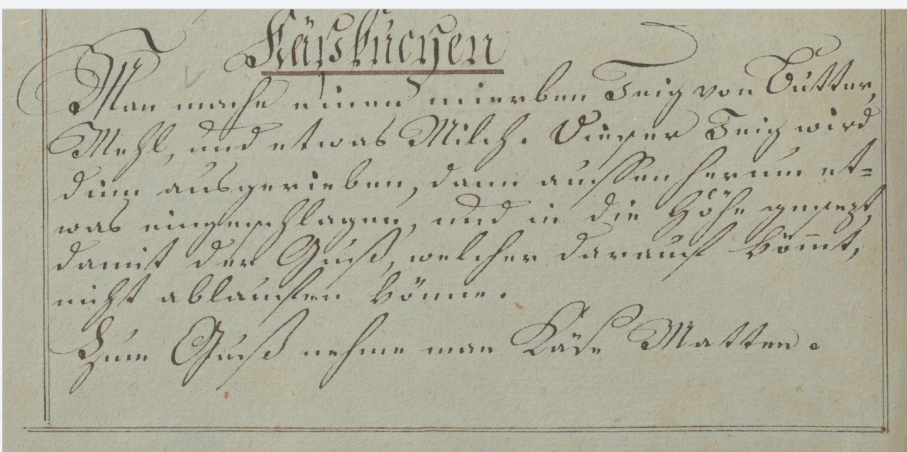 Käßkuchen
Man mache einen mierben Teig von Butter,
Mehl, und etwas Milch. Dieser Teig wird
dünn ausgerieben, dann aussen herum et=
was eingeschlagen, und in die Höhe gesezt,
damit der Guß, welcher darauf kömmt,
nicht ablauffen könne.
Zum Guß nehme man Käse Matten.